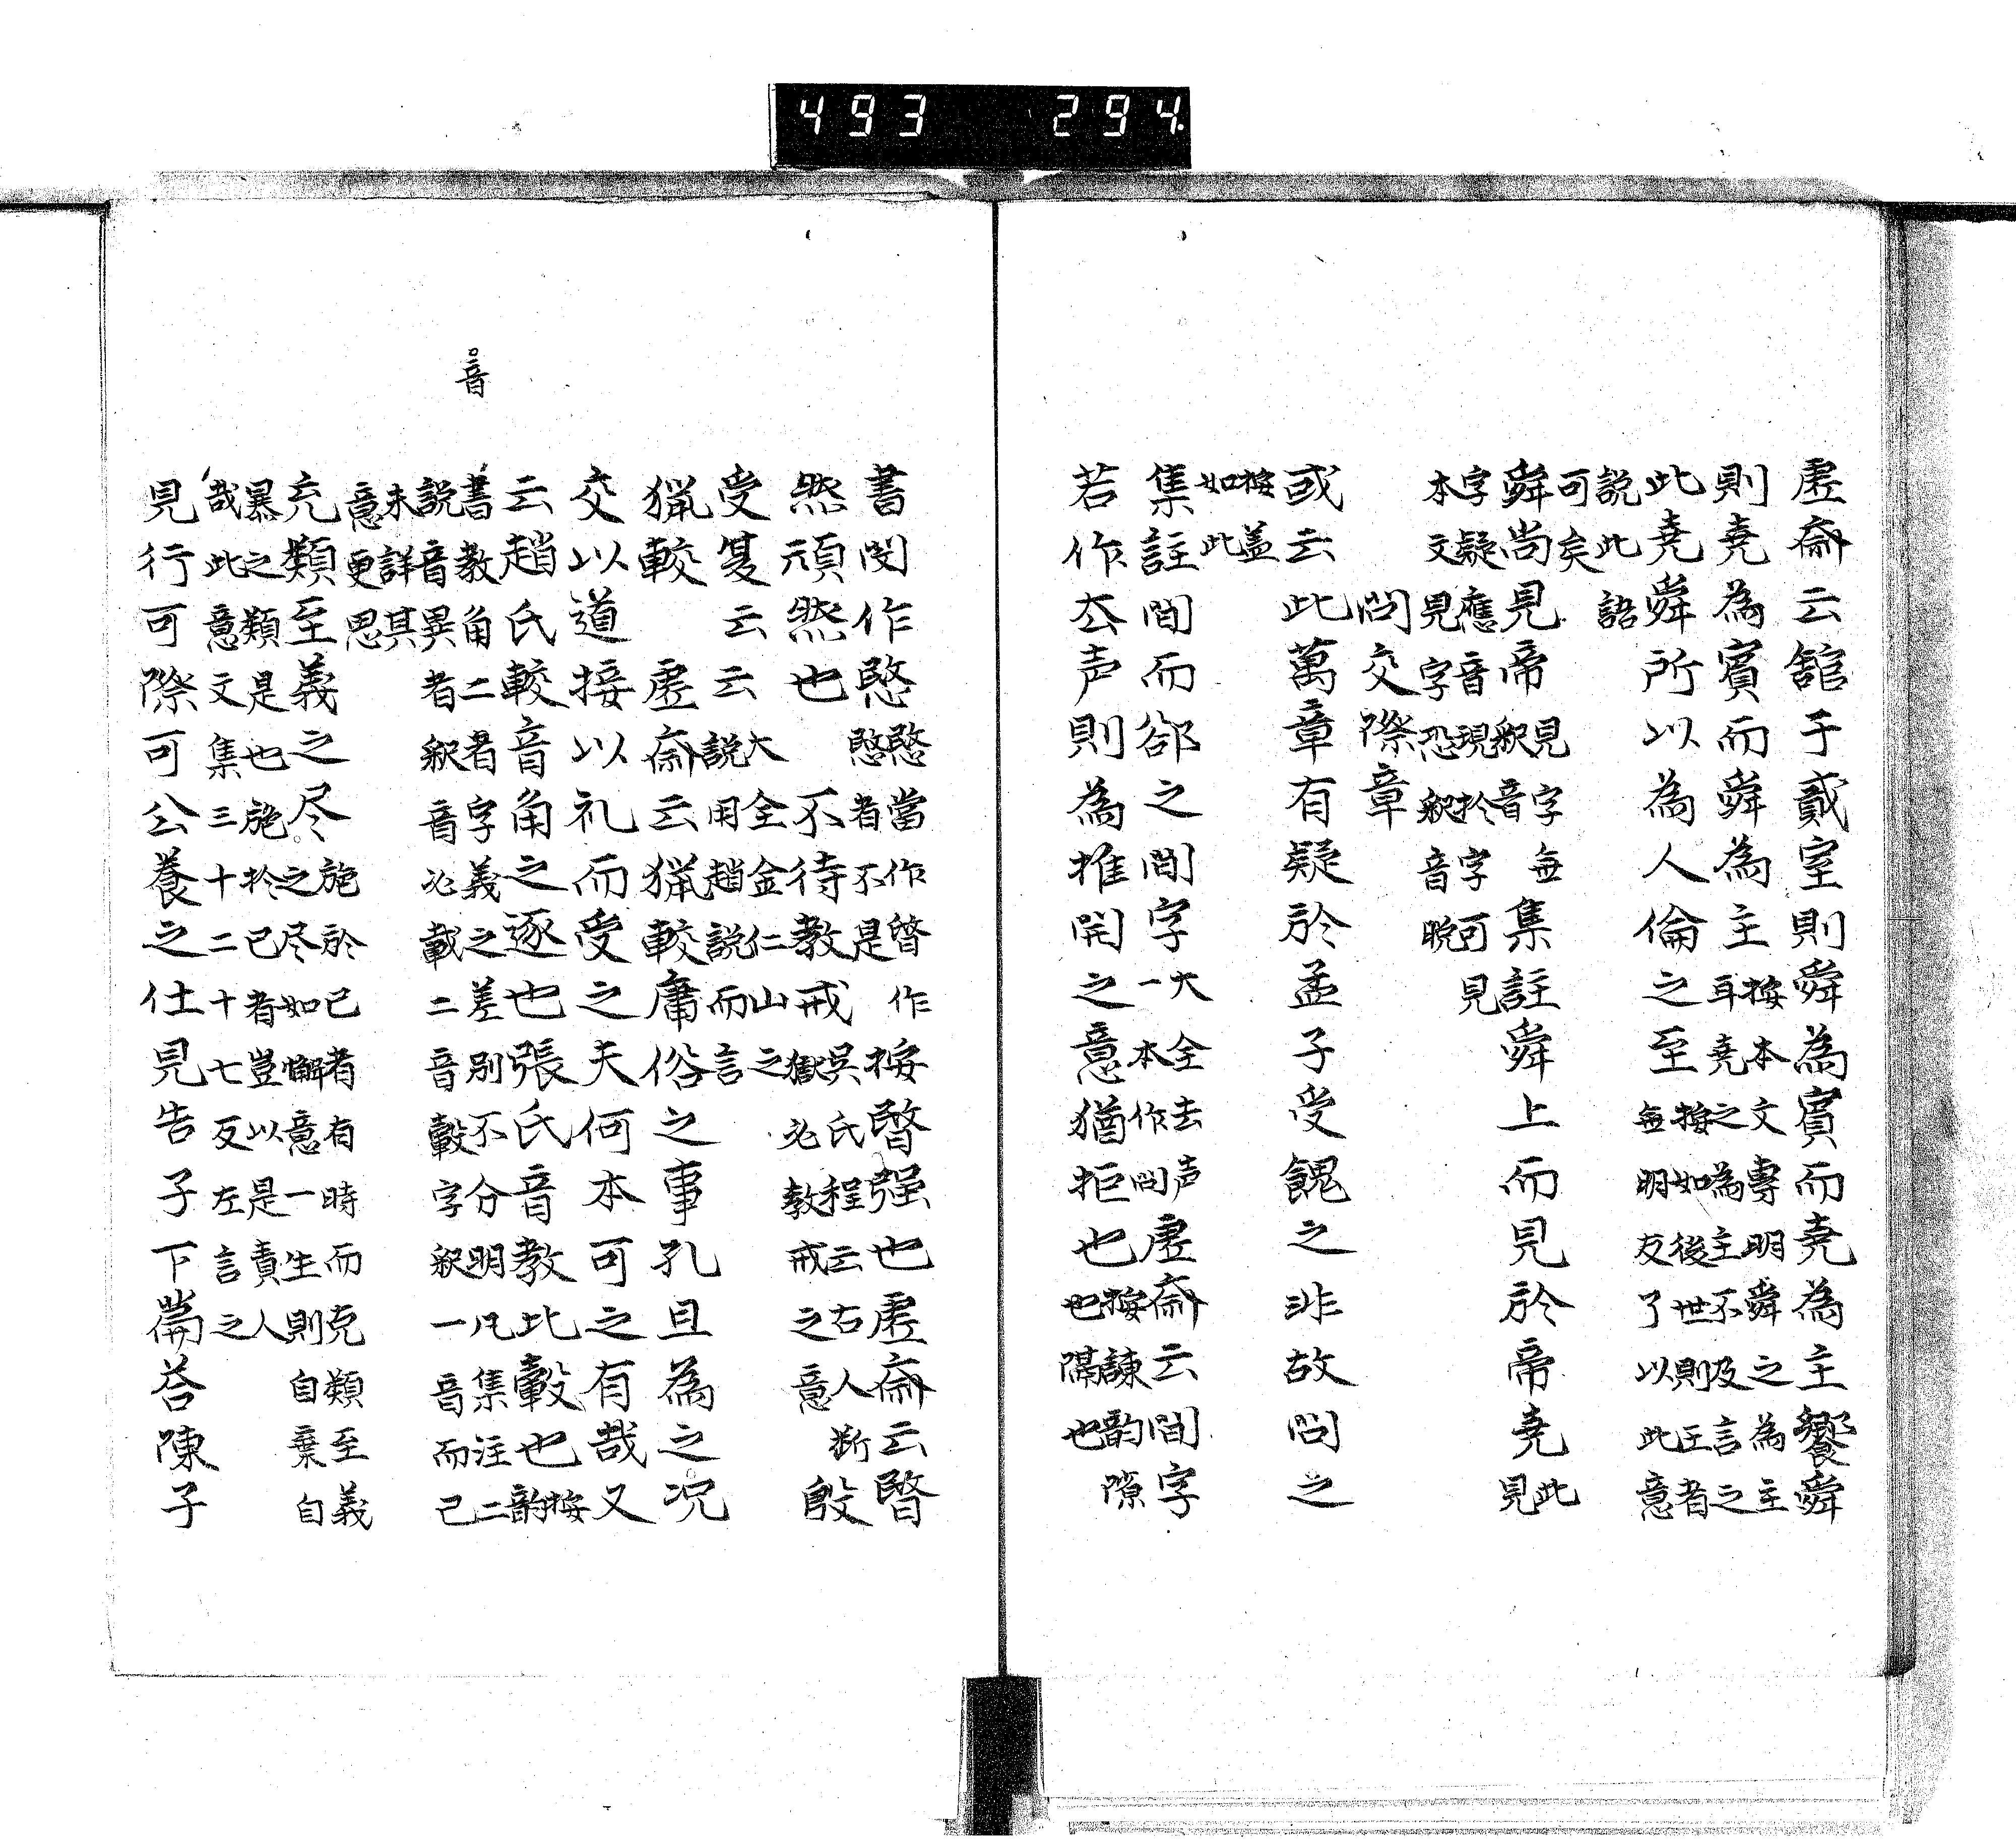 493 294
虗齋云舘于貳室則舜為賓而堯為主饗舜
則堯為賓而舜為主按本文專明舜之為主
耳堯之為主不及言之
此堯舜所以為人倫之至按如後世則王者
無明友了以此意
說此語
可矣
舜尚見帝見字無
釈音集註舜上而見於帝堯此
見
字疑應音現於字可見
本文見字恐釈音晩
問交際章
或云此萬章有疑於孟子受餽之非故問之
按盖
如此
集註間而郤之間字大全去声
一本作問虗齋云間字
若作去声則為推開之意猶拒也按諌韵隙
也隔也
書閔作愍愍當作暋作
愍者不是按暋强也虗齋云暋
然頑然也不待教戒吳氏程云右人断
獄必教戒之意殷
受夏云云大全金仁山之
說用趙說而言
猟較虗齋云猟較庸俗之事孔且為之况
交以道接以礼而受之夫何本可之有哉又
云趙氏較音角之逐也張氏音教比轂也按
韵
書教角二者字義之差別不分明凡集注二
說音異者釈音必載二音轂字釈一音而己
音
未詳其
意更思
充類至義之尽施於己者有時而克類至義
之尽如懈意一生則自棄自
暴之類是也施於己者豈以是責人
哉此意文集三十二十七反左言之
見行可際可公養之仕見告子下篇荅陳子